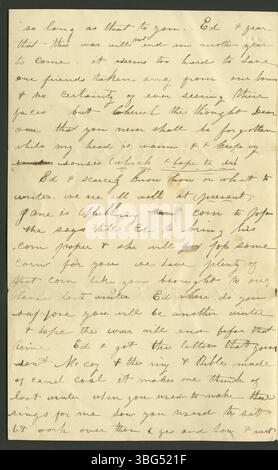 so long as that to you. Ed I fear
that this war will not end in another year
to come. it seems too hard to have
our friends taken away from our home
& no certainty of ever seeing their
faces but cherish the thought Dear
one that you never shall be forgotten
while my head is warm & I keep my
senses (which I hope to do)
Ed I scarcely know how or what to
write. we are all well at present,
Jane is shelling corn to pop
she says tell Ed to bring his
corn proper & she will pop some
corn for you we have plenty of
that corn like you brought to our
house last winter. Ed where do you
suppose you will be another winter
I hope the war will end before that
time. Ed I got the letter that you
sent McCoy & the ring & Bible made
of canel coal it makes me think of
last winter when you used to make those
rings for me how you used to set
& work over them (yes and how I
alamy
Image ID: 3BG521F
www.alamy.com